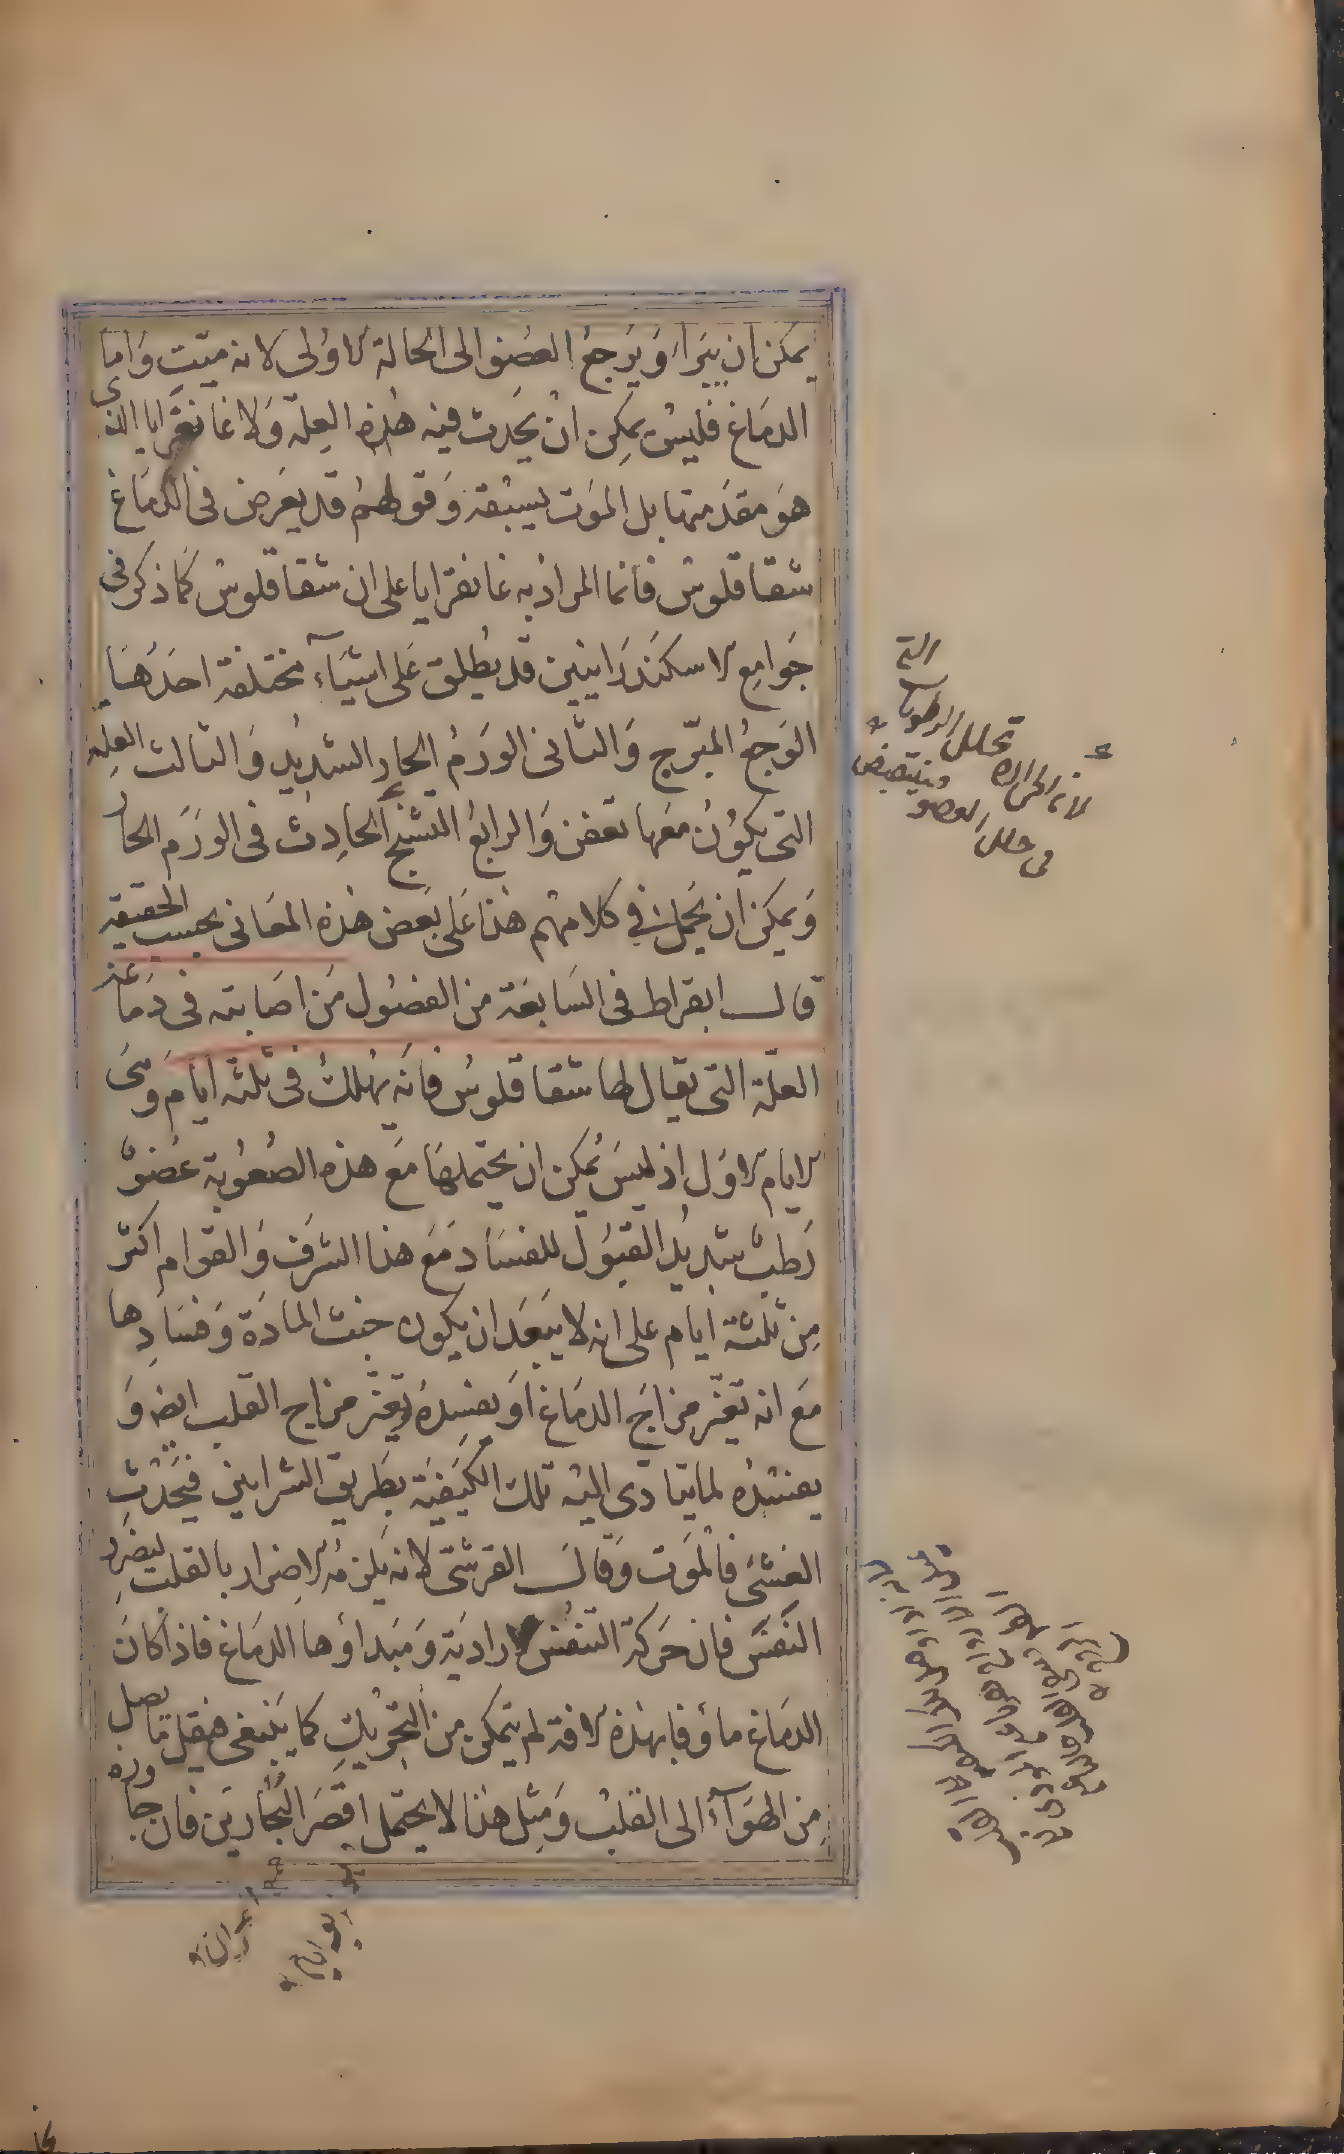 يمكن ان يبرأ وَيَرجعُ العضو الى الحالة الاولى لانه ميّتٍ وَاما
الدمَاغ فليس يمكِن انْ يَحدث فيه هٰذه العِلّه وَلا غانغرايا الذى
هوَ مقدمتها بل الموَت يسبقه وَقولهمْ قد يعَرض فى الدّمَاغ
شقاقلوس فانما المراد به غانغرايا على ان شقاقلوس كَما ذكر فى
جَوامِع الاسكنَدرَانيين قد يُطلق عَلى اشيَآء مختلفة احدَهَا
الوَجعُ المبّرح وَالثانى الورَمُ الحار الشديد وَالثالث العِلّة
التى يَكوُنُ مَعَها تعفن وَالرابعُ التشنج الحَادِث فى الورَم الحَار
وَيمكن ان يَحمل فى كلامهم هذا عَلى بَعض هٰذه المعَانى بحَسب الحقيقه
قالــ ابقراط فى السَابعَة من الفصُول مَن اصَابته فى دمَاغه
العلّة التى يقال لها شقاقلوُس فانَه يهلكُ فى ثلثه ايَّام وَهىَ
الايام الاوَل اذ ليسَ يمُكن ان يحتملهَا مَع هذه الصُعُوبة عُضوٌ
رَطبٌ شديدُ القبوُل للفسَاد مَعَ هذا الشرَف وَالقوام اكثر
مِن ثلثة ايام على انه لا يَبعَد ان يكون خبث المادَة وَفسَادِها
مَع انه تغيّر مِزاجَ الدمَاغ اوَ يفسِدهُ يغيّر مِزاج القلب ايضه وَ
يفسُدُه لما يتادّى اليْه تلك الكيَفيَة بطَريق الشرايين فيَحْدُث
الغشى فالمْوَت وَقالــ القرشىّ لانه يَلزمُه الاضِرار بالقلب ليضرِرِ
النَفسَ فان حَركة التنفسُ الارادَية وَمَبداؤها الدمَاغ فاذا كانَ
الدمَاغ ماؤفا بهذه الافة لم يتمكن من التحَريْك كما يَنبغى فيقل ما يصل
مِن الهوَآء الى القلبْ وَمِثل هذا لا يحتمل اقصَرَ البُحَارين فان جاوزه
التى
تحلل الرطوبات
لان الحرارة
وينقبض
فى خلل العضو